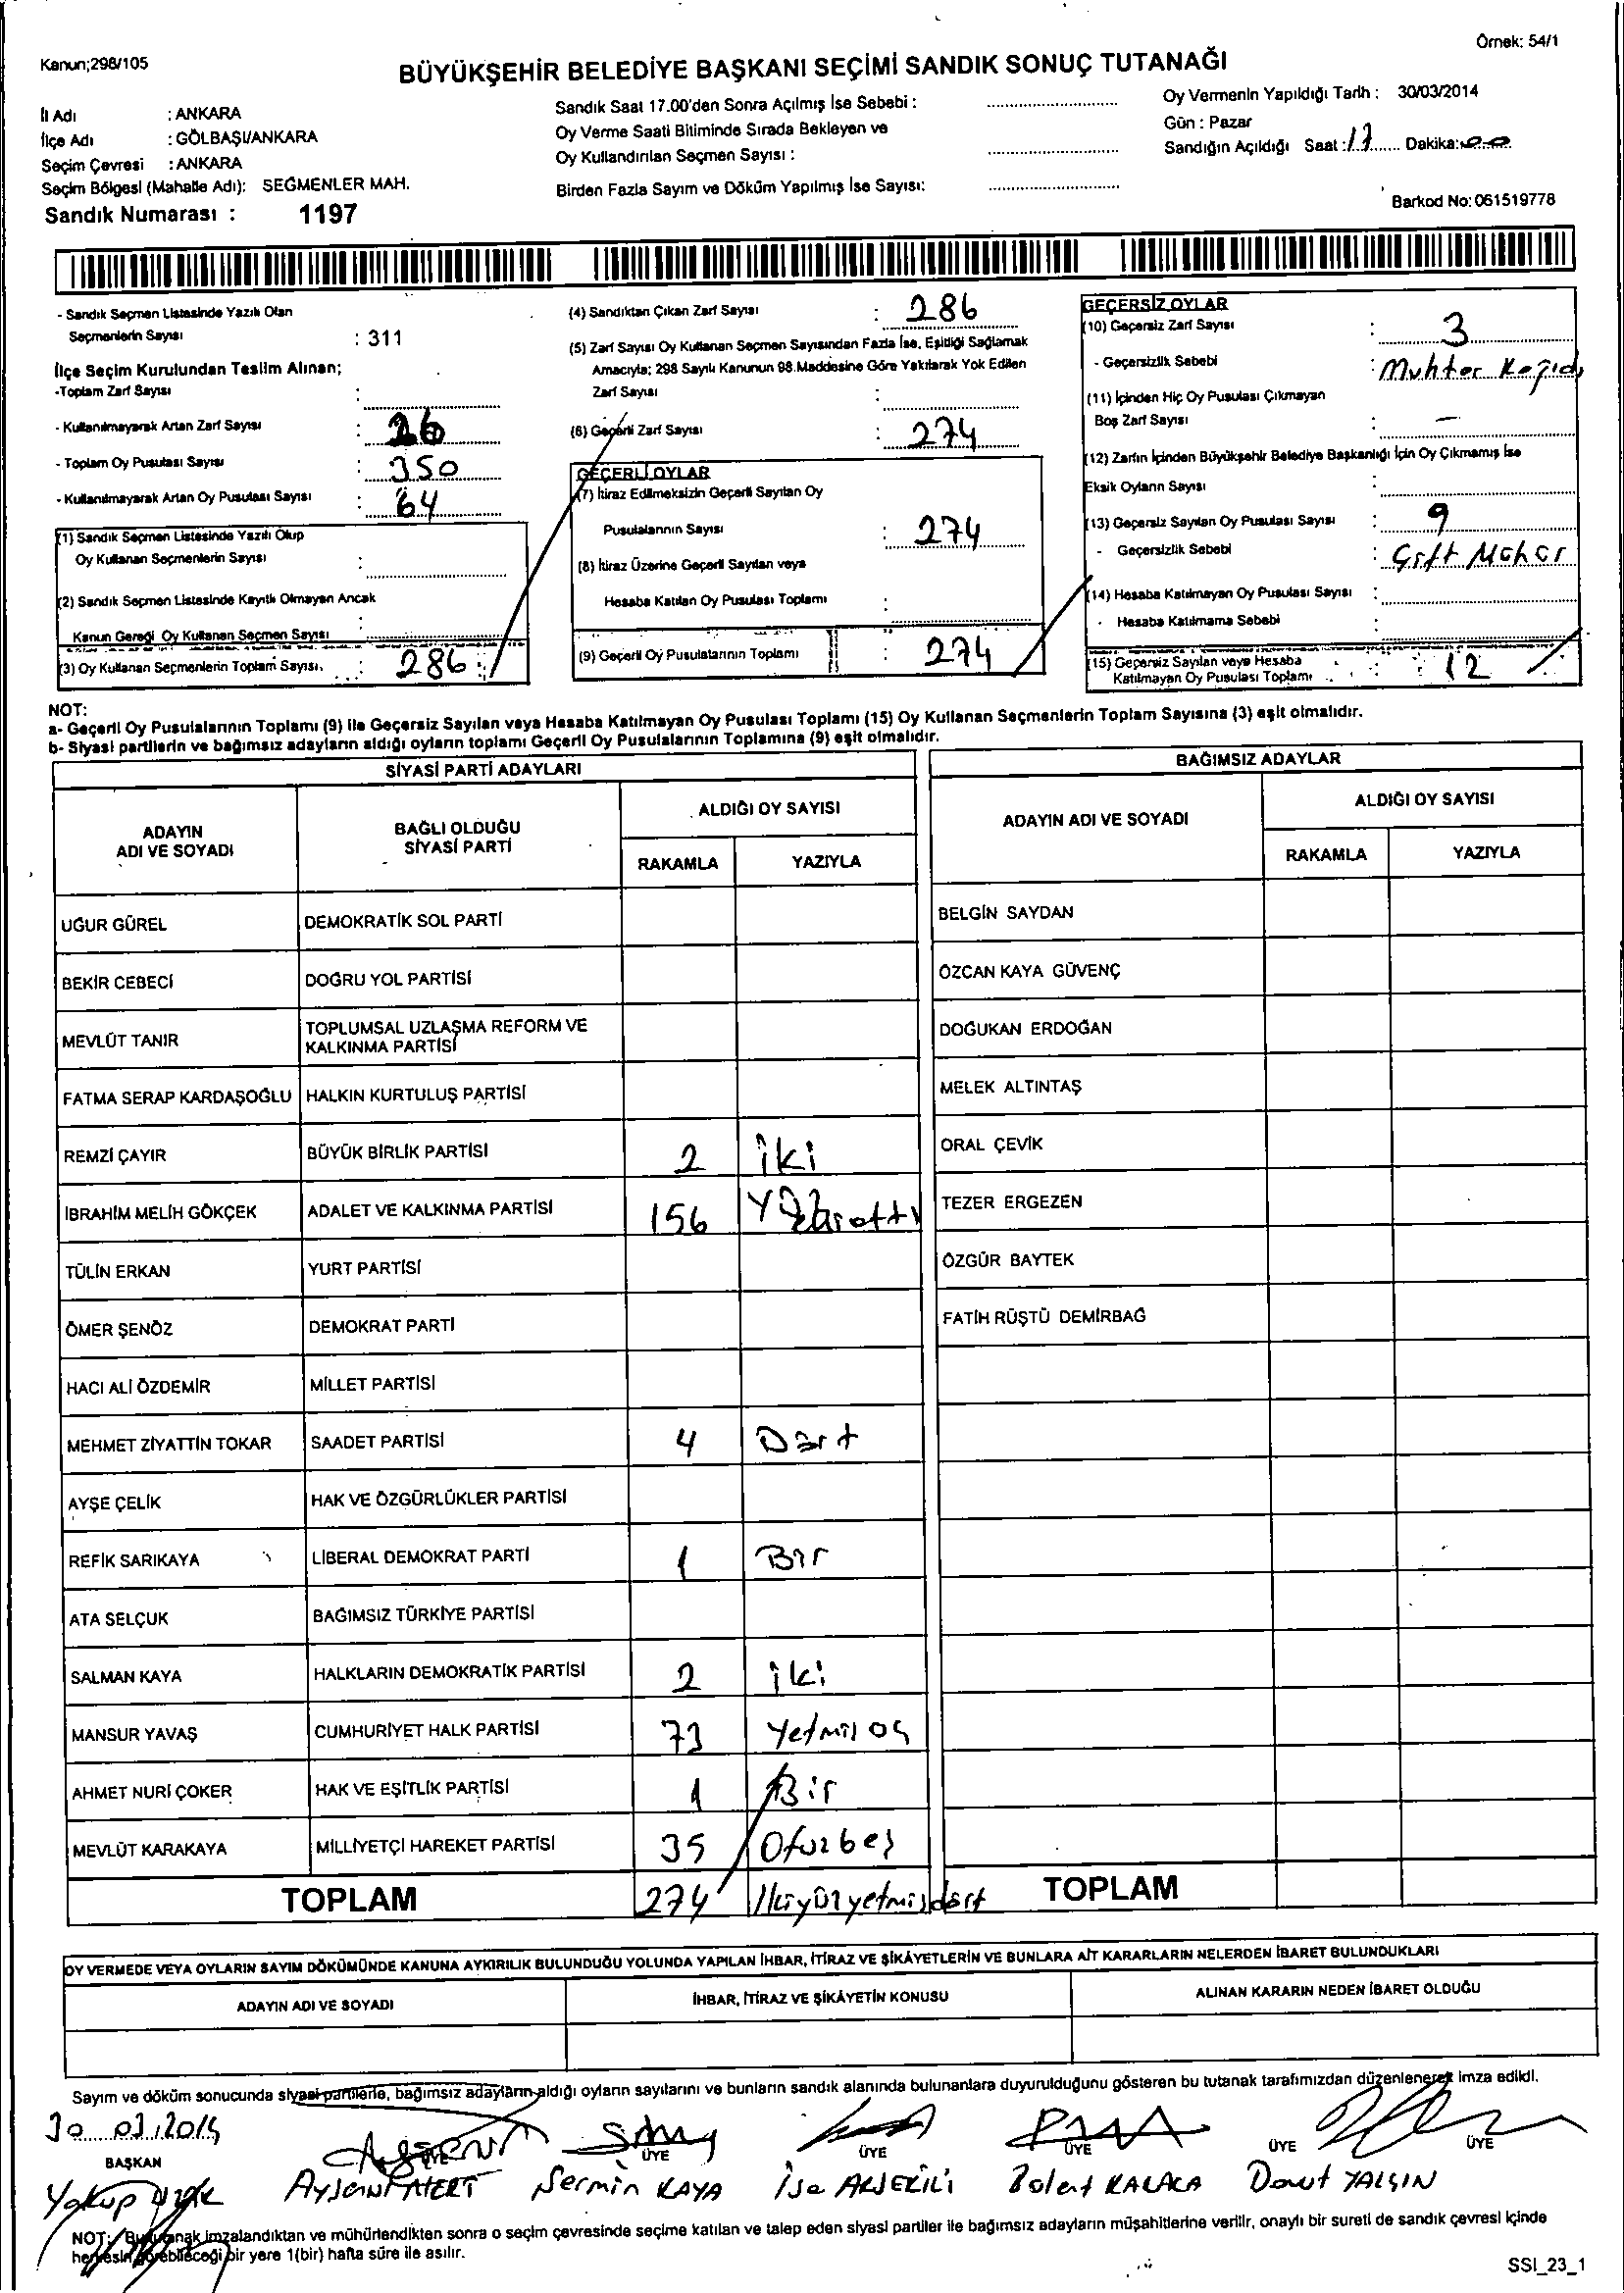 Örnek: 54/1
Kanun;298/105
BÜYÜKŞEHİR BELEDİYE BAŞKANI SEÇİMİ SANDIK SONUÇ TUTANAĞI
İl Adı : ANKARA
İlçe Adı : GÖLBAŞI/ANKARA
Seçim Çevresi : ANKARA
Seçim Bölgesi (Mahalle Adı): SEĞMENLER MAH.
Sandık Numarası : 1197
Sandık Saat 17.00'den Sonra Açılmış İse Sebebi :
Oy Verme Saati Bitiminde Sırada Bekleyen ve
Oy Kullandırılan Seçmen Sayısı :
Birden Fazla Sayım ve Döküm Yapılmış İse Sayısı:
Oy Vermenin Yapıldığı Tarih : 30/03/2014
Gün : Pazar
Sandığın Açıldığı Saat : 17 Dakika: 00
Barkod No: 061519778
- Sandık Seçmen Listesinde Yazılı Olan
Seçmenlerin Sayısı : 311
İlçe Seçim Kurulundan Teslim Alınan;
-Toplam Zarf Sayısı :
- Kullanılmayarak Artan Zarf Sayısı : 26
- Toplam Oy Pusulası Sayısı : 350
- Kullanılmayarak Artan Oy Pusulası Sayısı : 64
(1) Sandık Seçmen Listesinde Yazılı Olup
Oy Kullanan Seçmenlerin Sayısı :
(2) Sandık Seçmen Listesinde Kayıtlı Olmayan Ancak
Kanun Gereği Oy Kullanan Seçmen Sayısı :
(3) Oy Kullanan Seçmenlerin Toplam Sayısı. : 286
(4) Sandıktan Çıkan Zarf Sayısı : 286
(5) Zarf Sayısı Oy Kullanan Seçmen Sayısından Fazla İse, Eşitliği Sağlamak
Amacıyla; 298 Sayılı Kanunun 98.Maddesine Göre Yakılarak Yok Edilen
Zarf Sayısı :
(6) Geçerli Zarf Sayısı : 274
GEÇERLİ OYLAR
(7) İtiraz Edilmeksizin Geçerli Sayılan Oy
Pusulalarının Sayısı : 274
(8) İtiraz Üzerine Geçerli Sayılan veya
Hesaba Katılan Oy Pusulası Toplamı :
(9) Geçerli Oy Pusulalarının Toplamı : 274
GEÇERSİZ OYLAR
(10) Geçersiz Zarf Sayısı : 3
- Geçersizlik Sebebi : Muhtar Kağıdı
(11) İçinden Hiç Oy Pusulası Çıkmayan
Boş Zarf Sayısı : -
(12) Zarfın İçinden Büyükşehir Belediye Başkanlığı İçin Oy Çıkmamış İse
Eksik Oyların Sayısı :
(13) Geçersiz Sayılan Oy Pusulası Sayısı : 9
- Geçersizlik Sebebi : Çift Mühür
(14) Hesaba Katılmayan Oy Pusulası Sayısı :
- Hesaba Katılmama Sebebi :
(15) Geçersiz Sayılan veya Hesaba
Katılmayan Oy Pusulası Toplamı : 12
NOT:
a- Geçerli Oy Pusulalarının Toplamı (9) ile Geçersiz Sayılan veya Hesaba Katılmayan Oy Pusulası Toplamı (15) Oy Kullanan Seçmenlerin Toplam Sayısına (3) eşit olmalıdır.
b- Siyasi partilerin ve bağımsız adayların aldığı oyların toplamı Geçerli Oy Pusulalarının Toplamına (9) eşit olmalıdır.
SİYASİ PARTİ ADAYLARI
ADAYIN ADI VE SOYADI
BAĞLI OLDUĞU SİYASİ PARTİ
ALDIĞI OY SAYISI
RAKAMLA YAZIYLA
UĞUR GÜREL DEMOKRATİK SOL PARTİ
BEKİR CEBECİ DOĞRU YOL PARTİSİ
MEVLÜT TANIR TOPLUMSAL UZLAŞMA REFORM VE KALKINMA PARTİSİ
FATMA SERAP KARDAŞOĞLU HALKIN KURTULUŞ PARTİSİ
REMZİ ÇAYIR BÜYÜK BİRLİK PARTİSİ 2 iki
İBRAHİM MELİH GÖKÇEK ADALET VE KALKINMA PARTİSİ 156
TÜLİN ERKAN YURT PARTİSİ
ÖMER ŞENÖZ DEMOKRAT PARTİ
HACI ALİ ÖZDEMİR MİLLET PARTİSİ
MEHMET ZİYATTİN TOKAR SAADET PARTİSİ 4 Dört
AYŞE ÇELİK HAK VE ÖZGÜRLÜKLER PARTİSİ
REFİK SARIKAYA LİBERAL DEMOKRAT PARTİ 1 Bir
ATA SELÇUK BAĞIMSIZ TÜRKİYE PARTİSİ
SALMAN KAYA HALKLARIN DEMOKRATİK PARTİSİ 2 iki
MANSUR YAVAŞ CUMHURİYET HALK PARTİSİ 73 Yetmiş üç
AHMET NURİ ÇOKER HAK VE EŞİTLİK PARTİSİ 1 Bir
MEVLÜT KARAKAYA MİLLİYETÇİ HAREKET PARTİSİ 35 Otuzbeş
TOPLAM 274 İkiyüzyetmişdört
BAĞIMSIZ ADAYLAR
ADAYIN ADI VE SOYADI
ALDIĞI OY SAYISI
RAKAMLA YAZIYLA
BELGİN SAYDAN
ÖZCAN KAYA GÜVENÇ
DOĞUKAN ERDOĞAN
MELEK ALTINTAŞ
ORAL ÇEVİK
TEZER ERGEZEN
ÖZGÜR BAYTEK
FATİH RÜŞTÜ DEMİRBAĞ
TOPLAM
OY VERMEDE VEYA OYLARIN SAYIM DÖKÜMÜNDE KANUNA AYKIRILIK BULUNDUĞU YOLUNDA YAPILAN İHBAR, İTİRAZ VE ŞİKÂYETLERİN VE BUNLARA AİT KARARLARIN NELERDEN İBARET BULUNDUKLARI
ADAYIN ADI VE SOYADI İHBAR, İTİRAZ VE ŞİKÂYETİN KONUSU ALINAN KARARIN NEDEN İBARET OLDUĞU
Sayım ve döküm sonucunda siyasi partilerle, bağımsız adayların aldığı oyların sayılarını ve bunların sandık alanında bulunanlara duyurulduğunu gösteren bu tutanak tarafımızdan düzenlenerek imza edildi.
30.03.2014
BAŞKAN ÜYE ÜYE ÜYE ÜYE ÜYE ÜYE
Yakup Aysun MERT Nermin KAYA İsa AKSEKİLİ Bülent KALAKA Davut YALÇIN
NOT: Bu tutanak imzalandıktan ve mühürlendikten sonra o seçim çevresinde seçime katılan ve talep eden siyasi partiler ile bağımsız adayların müşahitlerine verilir, onaylı bir sureti de sandık çevresi içinde
herkesin görebileceği bir yere 1(bir) hafta süre ile asılır.
SSI_23_1